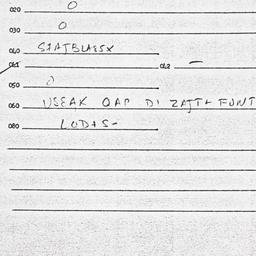 020 0
030 0
040 STATBLASSX
041 042 —
050 0
060 USEAK OAP DI ZATT+ FUNT
080 LODTS-